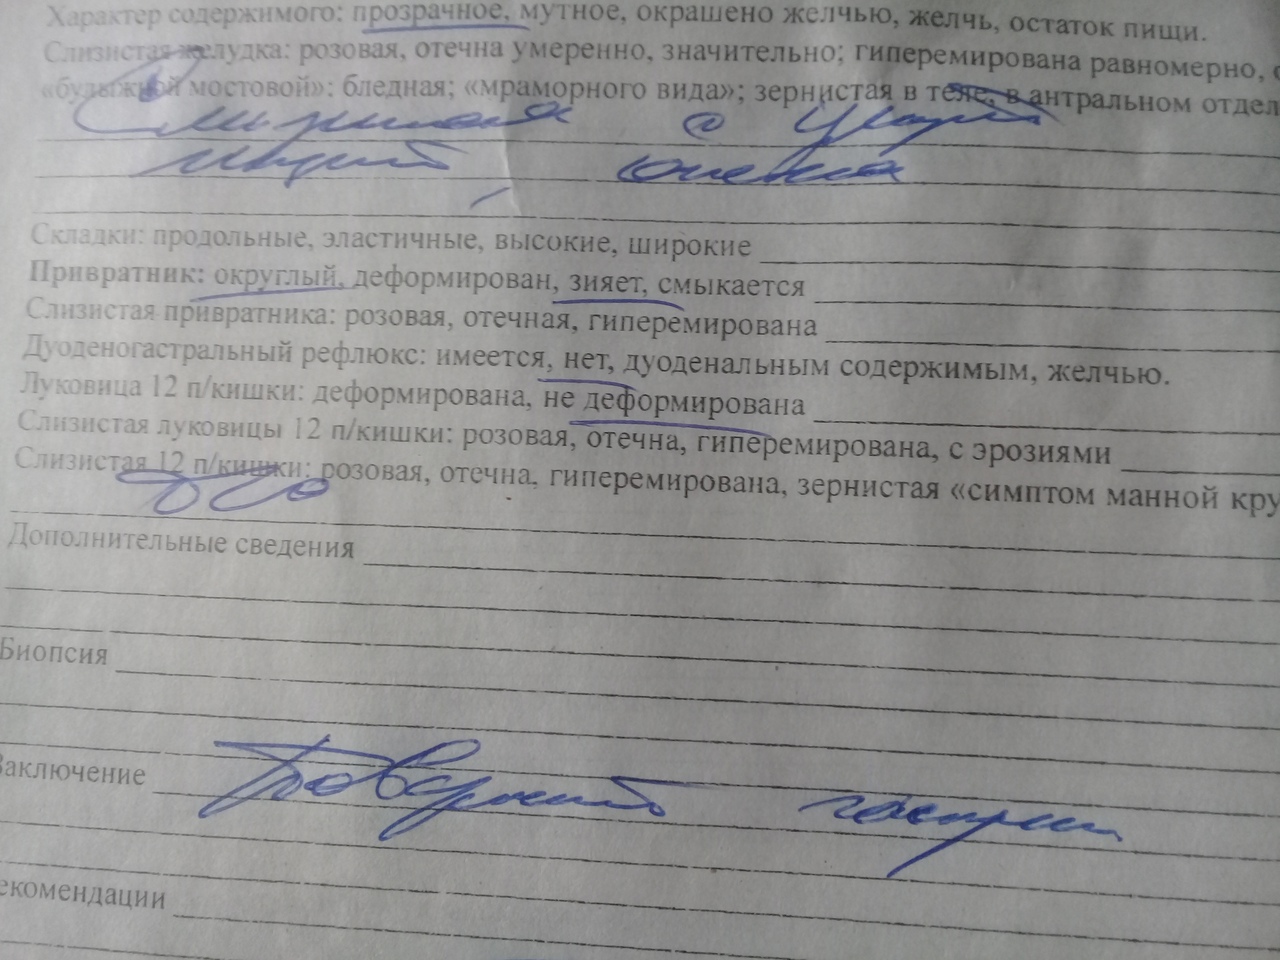 Характер содержимого: прозрачное, мутное, окрашено желчью, желчь, остаток пищи.
Слизистая желудка: розовая, отечна умеренно, значительно; гиперемирована равномерно,
«булыжной мостовой»: бледная; «мраморного вида»; зернистая в теле, в антральном отдел
Слизистая с
отечна
Складки: продольные, эластичные, высокие, широкие
Привратник: округлый, деформирован, зияет, смыкается
Слизистая привратника: розовая, отечная, гиперемирована
Дуоденогастральный рефлюкс: имеется, нет, дуоденальным содержимым, желчью.
Луковица 12 п/кишки: деформирована, не деформирована
Слизистая луковицы 12 п/кишки: розовая, отечна, гиперемирована, с эрозиями
Слизистая 12 п/кишки: розовая, отечна, гиперемирована, зернистая «симптом манной кру
Дополнительные сведения
Биопсия
Заключение Поверхност гастрит
екомендации